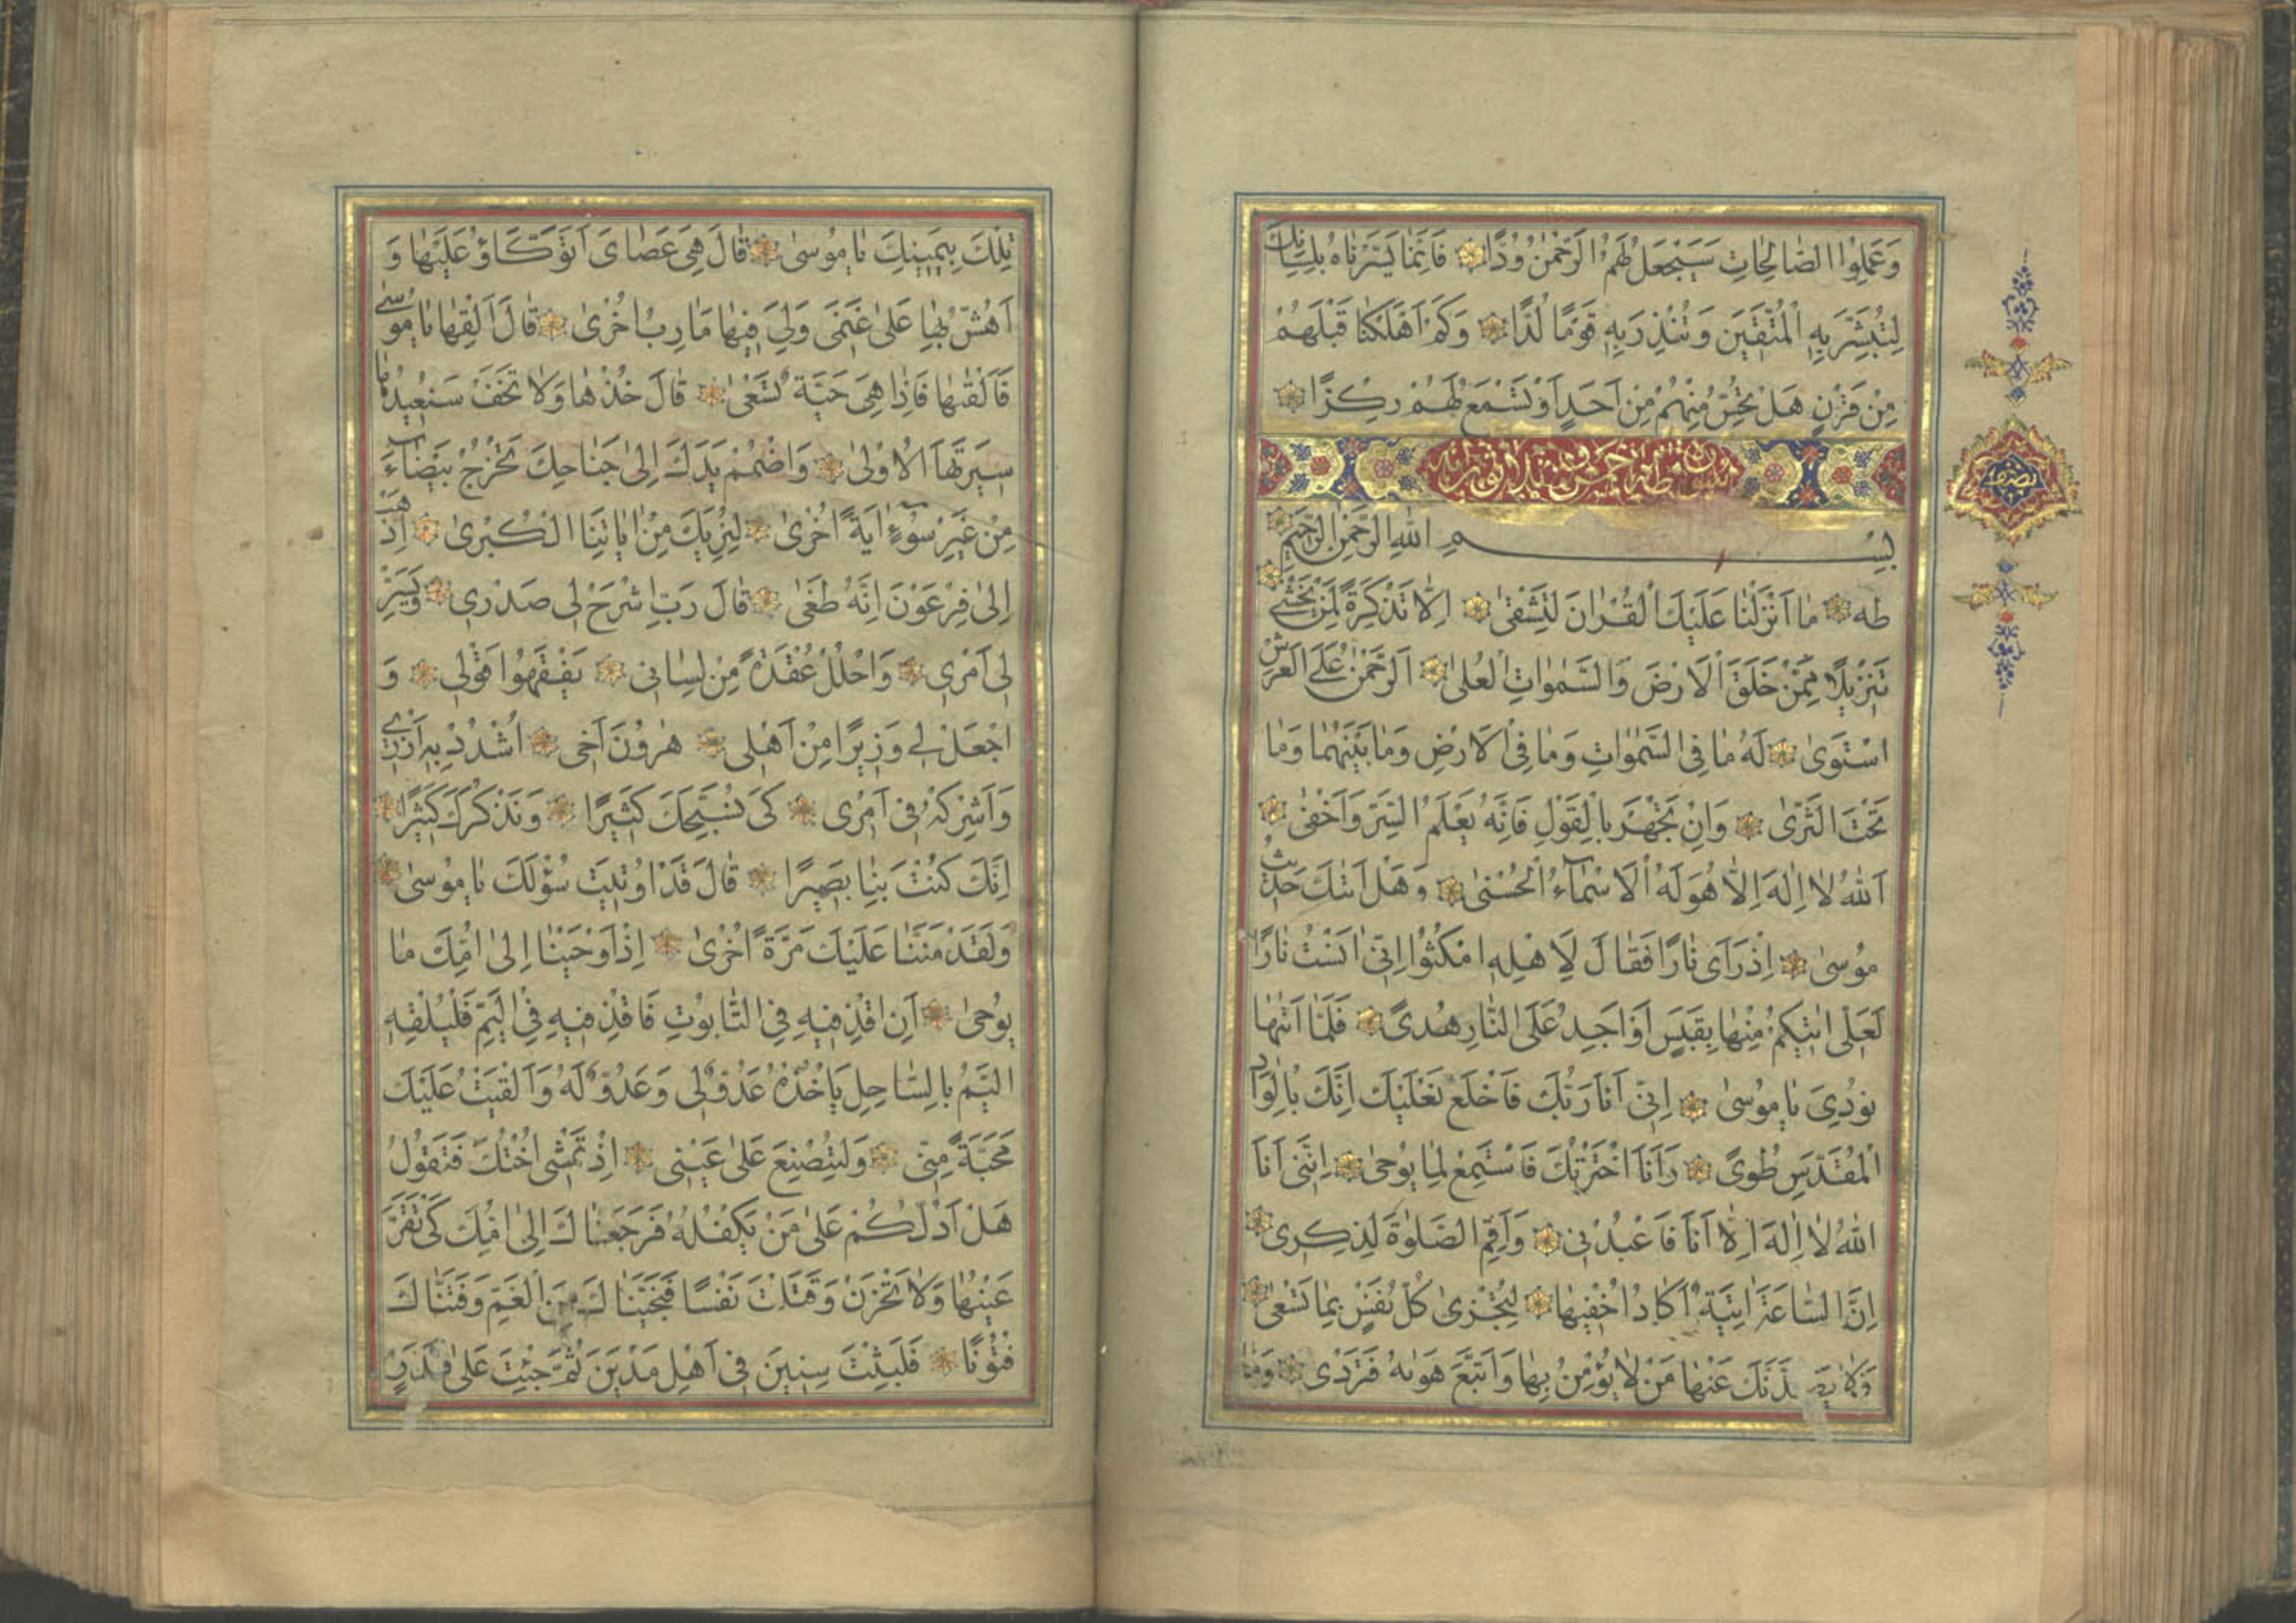 وَعَمِلُوا الصَّالِحَاتِ سَيَجْعَلُ لَهُمُ الرَّحْمٰنُ وُدًّا فَاِنَّمَا يَسَّرْنَاهُ بِلِسَانِكَ
لِتُبَشِّرَ بِهِ الْمُتَّقِينَ وَتُنْذِرَ بِهِ قَوْمًا لُدًّا وَكَمْ اَهْلَكْنَا قَبْلَهُمْ
مِنْ قَرْنٍ هَلْ تُحِسُّ مِنْهُمْ مِنْ اَحَدٍ اَوْ تَسْمَعُ لَهُمْ رِكْزًا
نصف
بِسْمِ اللهِ الرَّحْمٰنِ الرَّحِيمِ
طه مَا اَنْزَلْنَا عَلَيْكَ الْقُرْاٰنَ لِتَشْقٰى اِلَّا تَذْكِرَةً لِمَنْ يَخْشٰى
تَنْزِيلًا مِمَّنْ خَلَقَ الْاَرْضَ وَالسَّمٰوَاتِ الْعُلٰى اَلرَّحْمٰنُ عَلَى الْعَرْشِ
اسْتَوٰى لَهُ مَا فِي السَّمٰوَاتِ وَمَا فِي الْاَرْضِ وَمَا بَيْنَهُمَا وَمَا
تَحْتَ الثَّرٰى وَاِنْ تَجْهَرْ بِالْقَوْلِ فَاِنَّهُ يَعْلَمُ السِّرَّ وَاَخْفٰى
اَللهُ لَا اِلٰهَ اِلَّا هُوَ لَهُ الْاَسْمَاءُ الْحُسْنٰى وَهَلْ اَتٰيكَ حَدِيثُ
مُوسٰى اِذْ رَاٰى نَارًا فَقَالَ لِاَهْلِهِ امْكُثُوا اِنِّي اٰنَسْتُ نَارًا
لَعَلِّي اٰتِيكُمْ مِنْهَا بِقَبَسٍ اَوْ اَجِدُ عَلَى النَّارِ هُدًى فَلَمَّا اَتٰيهَا
نُودِيَ يَا مُوسٰى اِنِّي اَنَا رَبُّكَ فَاخْلَعْ نَعْلَيْكَ اِنَّكَ بِالْوَادِ
الْمُقَدَّسِ طُوًى وَاَنَا اخْتَرْتُكَ فَاسْتَمِعْ لِمَا يُوحٰى اِنَّنِي اَنَا
اللهُ لَا اِلٰهَ اِلَّا اَنَا فَاعْبُدْنِي وَاَقِمِ الصَّلٰوةَ لِذِكْرِي
اِنَّ السَّاعَةَ اٰتِيَةٌ اَكَادُ اُخْفِيهَا لِتُجْزٰى كُلُّ نَفْسٍ بِمَا تَسْعٰى
فَلَا يَصُدَّنَّكَ عَنْهَا مَنْ لَا يُؤْمِنُ بِهَا وَاتَّبَعَ هَوٰيهُ فَتَرْدٰى وَمَا
تِلْكَ بِيَمِينِكَ يَا مُوسٰى قَالَ هِيَ عَصَايَ اَتَوَكَّاؤُ عَلَيْهَا وَ
اَهُشُّ بِهَا عَلٰى غَنَمِي وَلِيَ فِيهَا مَاٰرِبُ اُخْرٰى قَالَ اَلْقِهَا يَا مُوسٰى
فَاَلْقٰيهَا فَاِذَا هِيَ حَيَّةٌ تَسْعٰى قَالَ خُذْهَا وَلَا تَخَفْ سَنُعِيدُهَا
سِيرَتَهَا الْاُولٰى وَاضْمُمْ يَدَكَ اِلٰى جَنَاحِكَ تَخْرُجْ بَيْضَاءَ
مِنْ غَيْرِ سُوءٍ اٰيَةً اُخْرٰى لِنُرِيَكَ مِنْ اٰيَاتِنَا الْكُبْرٰى اِذْهَبْ
اِلٰى فِرْعَوْنَ اِنَّهُ طَغٰى قَالَ رَبِّ اشْرَحْ لِي صَدْرِي وَيَسِّرْ
لِي اَمْرِي وَاحْلُلْ عُقْدَةً مِنْ لِسَانِي يَفْقَهُوا قَوْلِي وَ
اجْعَلْ لِي وَزِيرًا مِنْ اَهْلِي هٰرُونَ اَخِي اُشْدُدْ بِهِ اَزْرِي
وَاَشْرِكْهُ فِي اَمْرِي كَيْ نُسَبِّحَكَ كَثِيرًا وَنَذْكُرَكَ كَثِيرًا
اِنَّكَ كُنْتَ بِنَا بَصِيرًا قَالَ قَدْ اُوتِيتَ سُؤْلَكَ يَا مُوسٰى
وَلَقَدْ مَنَنَّا عَلَيْكَ مَرَّةً اُخْرٰى اِذْ اَوْحَيْنَا اِلٰى اُمِّكَ مَا
يُوحٰى اَنِ اقْذِفِيهِ فِي التَّابُوتِ فَاقْذِفِيهِ فِي الْيَمِّ فَلْيُلْقِهِ
الْيَمُّ بِالسَّاحِلِ يَاْخُذْهُ عَدُوٌّ لِي وَعَدُوٌّ لَهُ وَاَلْقَيْتُ عَلَيْكَ
مَحَبَّةً مِنِّي وَلِتُصْنَعَ عَلٰى عَيْنِي اِذْ تَمْشِي اُخْتُكَ فَتَقُولُ
هَلْ اَدُلُّكُمْ عَلٰى مَنْ يَكْفُلُهُ فَرَجَعْنَاكَ اِلٰى اُمِّكَ كَيْ تَقَرَّ
عَيْنُهَا وَلَا تَحْزَنَ وَقَتَلْتَ نَفْسًا فَنَجَّيْنَاكَ مِنَ الْغَمِّ وَفَتَنَّاكَ
فُتُونًا فَلَبِثْتَ سِنِينَ فِي اَهْلِ مَدْيَنَ ثُمَّ جِئْتَ عَلٰى قَدَرٍ